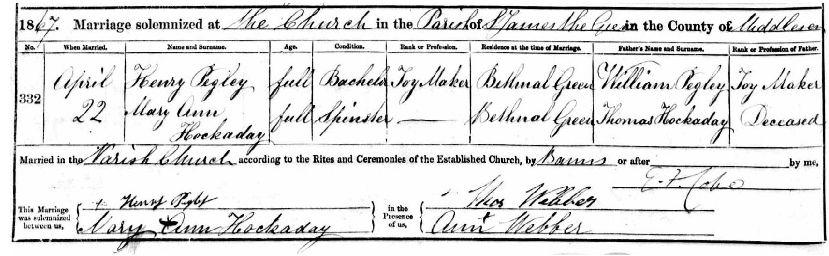 1867. Marriage solemnized at The Church in the Parish of St James the Great in the County of Middlesex
No. When Married. Name and Surname. Age. Condition. Rank or Profession. Residence at the time of Marriage. Father's Name and Surname. Rank or Profession of Father.
332 April 22 Henry Pegley full Bachelor Toy Maker Bethnal Green William Pegley Toy Maker
Mary Ann Hockaday full Spinster — Bethnal Green Thomas Hockaday Deceased
Married in the Parish Church according to the Rites and Ceremonies of the Established Church, by Banns or after by me,
This Marriage was solemnized between us, Henry
Mary Ann Hockaday
in the Presence of us, Thos Webber
Ann Webber